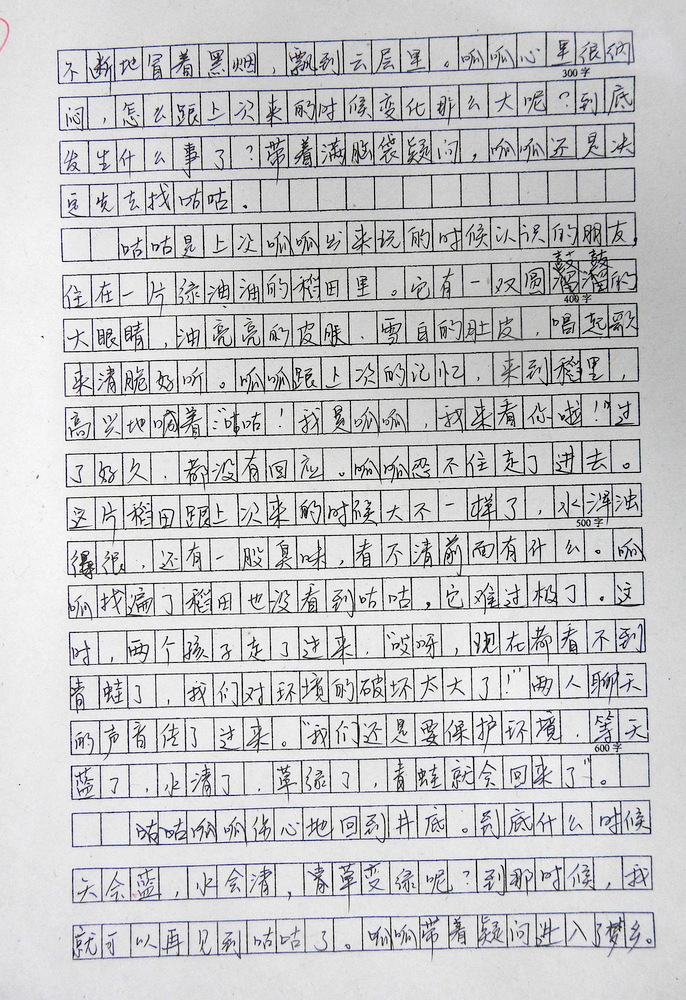 不断地冒着黑烟，飘到云层里。呱呱心里很纳
300字
闷，怎么跟上次来的时候变化那么大呢？到底
发生什么事了？带着满脑袋疑问，呱呱还是决
定先去找咕咕。
咕咕是上次呱呱出来玩的时候认识的朋友，
鼓鼓
住在一片绿油油的稻田里。它有一双圆溜溜的
400字
大眼睛，油亮亮的皮肤，雪白的肚皮，唱起歌
来清脆好听。呱呱跟上次的记忆，来到稻里，
高兴地喊着：“咕咕！我是呱呱，我来看你啦！”过
了好久，都没有回应。呱呱忍不住走了进去。
这片稻田跟上次来的时候大不一样了，水浑浊
500字
得很，还有一股臭味，看不清前面有什么。呱
呱找遍了稻田也没看到咕咕，它难过极了。这
时，两个孩子走了过来，“哎呀，现在都看不到
青蛙了，我们对环境的破坏太大了！”两人聊天
的声音传了过来。“我们还是要保护环境，等天
600字
蓝了，水清了，草绿了，青蛙就会回来了”。
咕咕呱呱伤心地回到井底。到底什么时候
天会蓝，水会清，青草变绿呢？到那时候，我
就可以再见到咕咕了。呱呱带着疑问进入了梦乡。